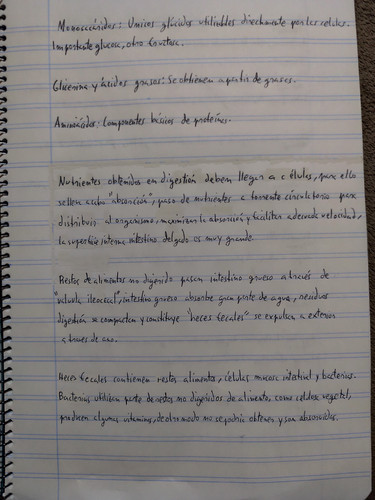 Monosacáridos: Unicos glúcidos utilizables directamente por las celulas.
Importante glucosa, otro fructosa.
Glicerina y ácidos grasos: Se obtienen a partir de grasas.
Aminoácidos: Componentes básicos de proteínas.
Nutrientes obtenidos en digestión deben llegar a celulas, para ello
se lleva acabo "absorción", paso de nutrientes a torrente circulatorio para
distribuir al organismo, maximizar la absorción y facilitar adecuada velocidad,
la superficie interna intestino delgado es muy grande.
Restos de alimentos no digerido pasan intestino grueso a través de
"valvula ileocecal", intestino grueso absorbe gran parte de agua, residuos
digestión se compactan y constituye "heces fecales" se expulsan a exterior
a traves de ano.
Heces fecales contienen restos alimento, células mucosa intestinal y bacterias.
Bacterias utilizan parte de restos no digeridos de alimento, como celulosa vegetal,
producen algunas vitaminas, de otro modo no se podria obtener y son absorvidas.